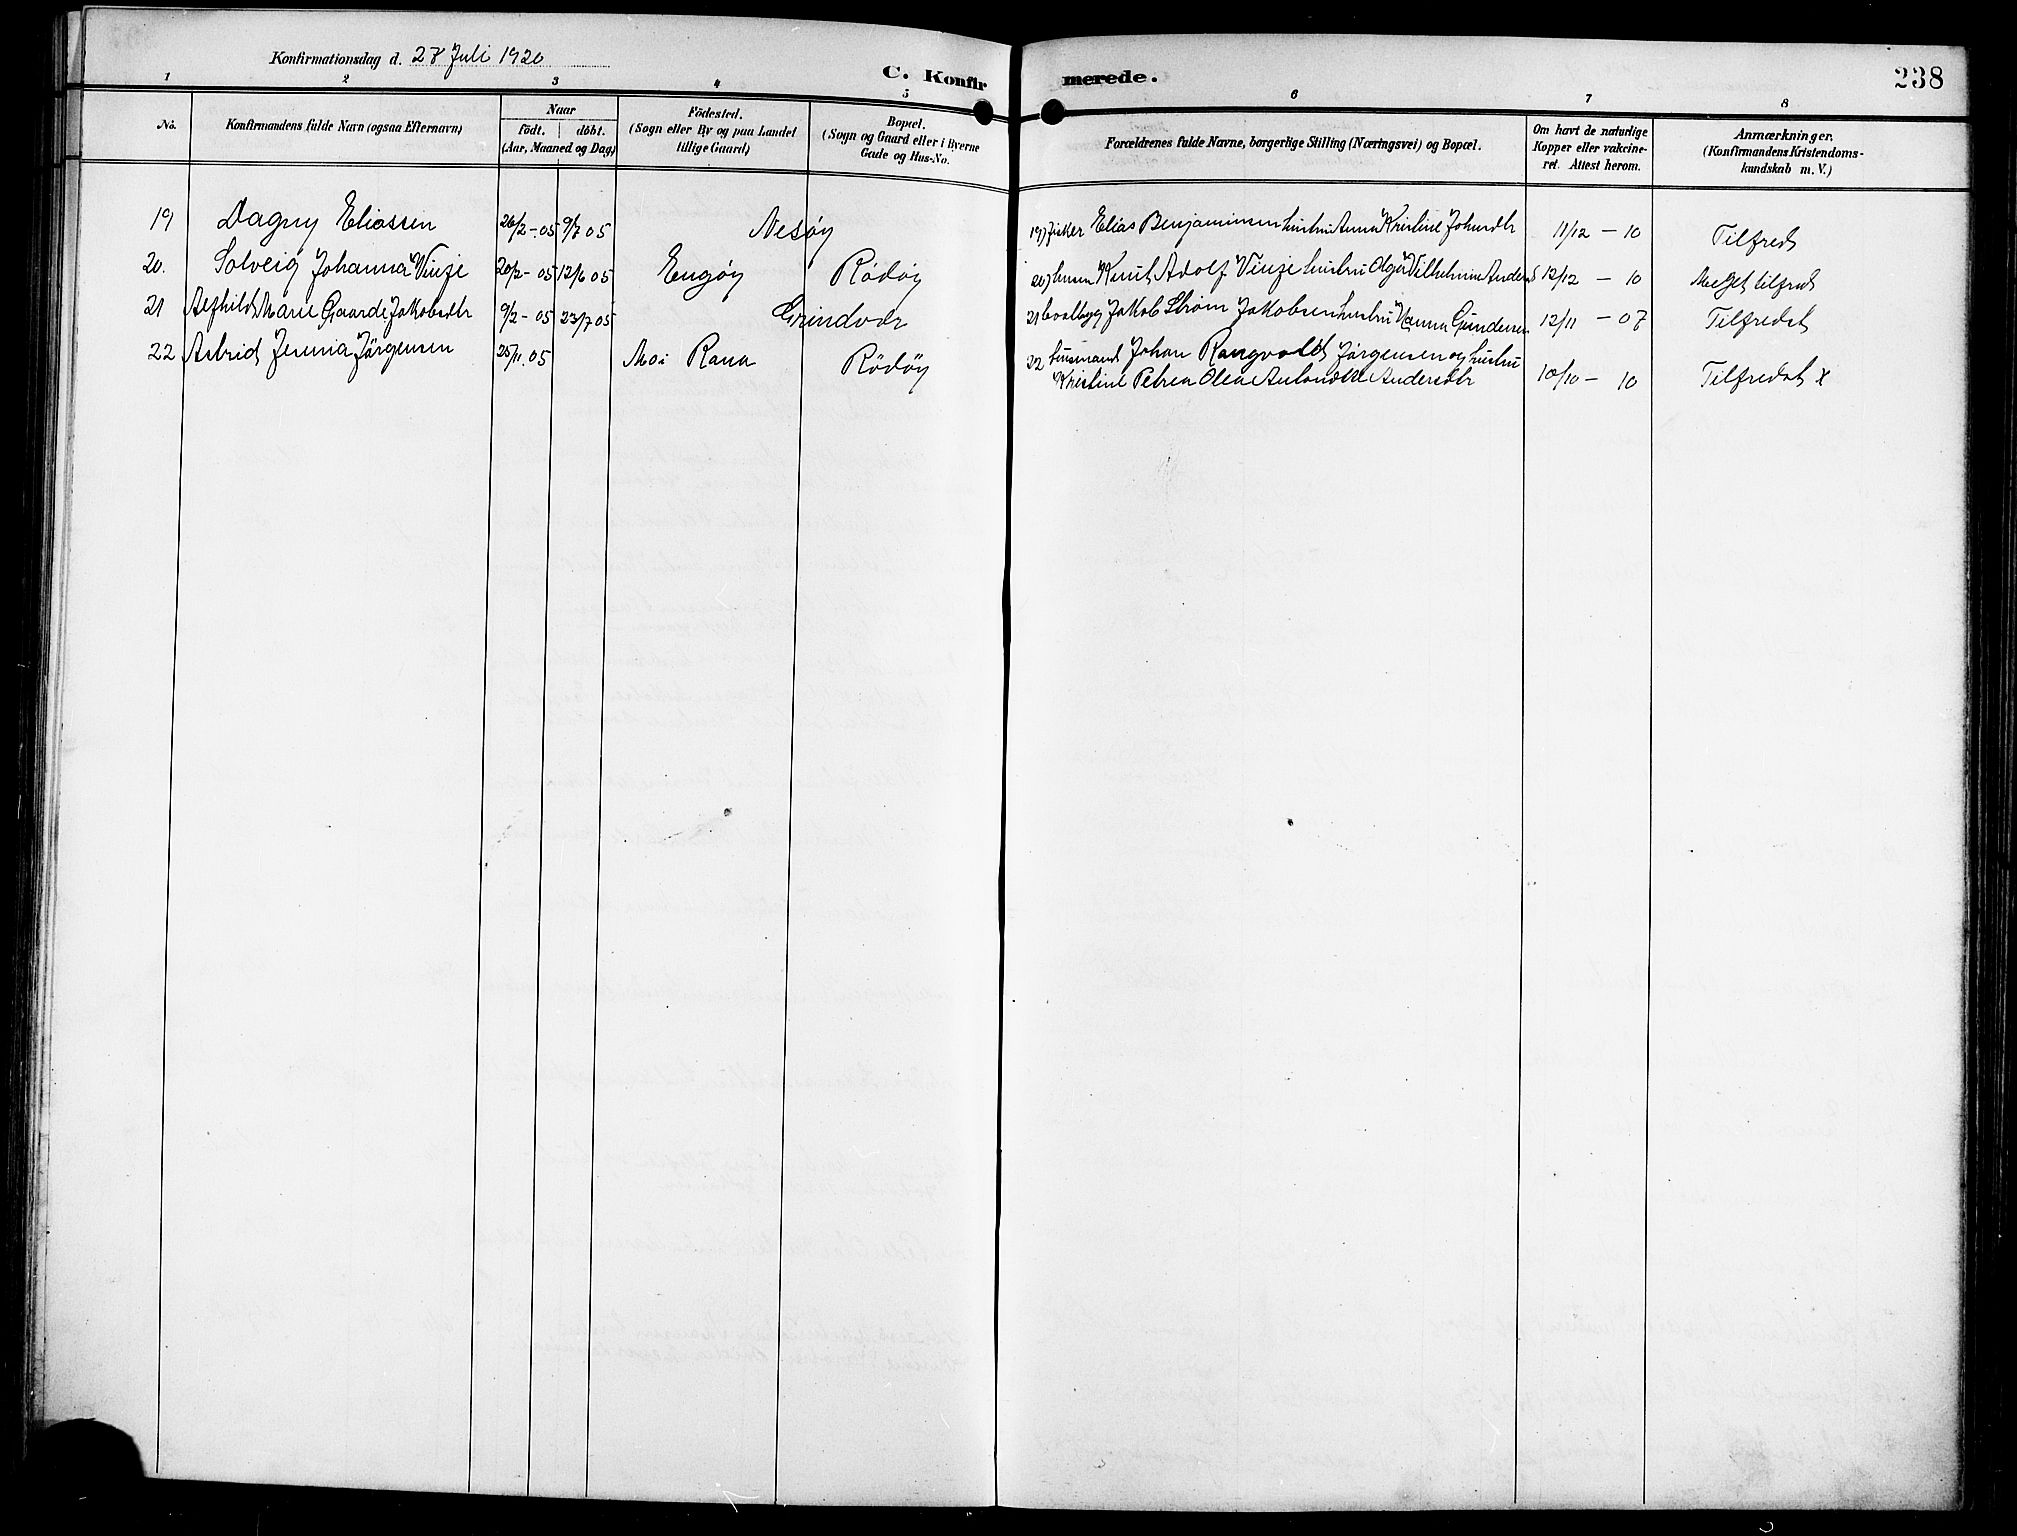 Konfirmationsdag d. 27 Juli 1920
C. Konfirmerede.
238
1 2 3 4 5 6 7 8
No.
Konfirmandens fulde Navn (ogsaa Efternavn)
Naar
födt. döbt.
(Aar, Maaned og Dag)
Födested.
(Sogn eller By og paa Landet
tillige Gaard)
Bopæl.
(Sogn og Gaard eller i Byerne
Gade og Hus-No.
Forældrenes fulde Navne, borgerlige Stilling (Næringsvei) og Bopæl.
Om havt de naturlige
Kopper eller vakcine-
ret. Attest herom.
Anmærkninger.
(Konfirmandens Kristendoms-
kundskab m. V.)
19 Dagny Eliassen 26/2-05 9/7 05 Nesøy 19) Fisker Elias Benjaminsen hustru Anna Kristine Johnsdtr 11/12 - 10 Tilfreds
20. Solveig Johanna Vinje 20/2-05 12/6 05 Engøy Rødøy 20) Knut Adolf Vinje hustru Olga Vilhelmine Anders 12/12 - 10 Meget tilfreds
21 Alfhild Marie Gaarde Jakobsdtr 9/2-05 23/7 05 Grindvær 21 Jakob Strøm Jakobsen hustru Hanna Gundersen 12/11 - 07 Tilfredst
22 Astrid Jensia Jörgensen 25/11.05 Moi Rana Rødøy 22 husmand Johan Rangvald Jörgensen og hustru
Kristine Petrea Olea Andersdtr 10/10 - 10 Tilfredst x